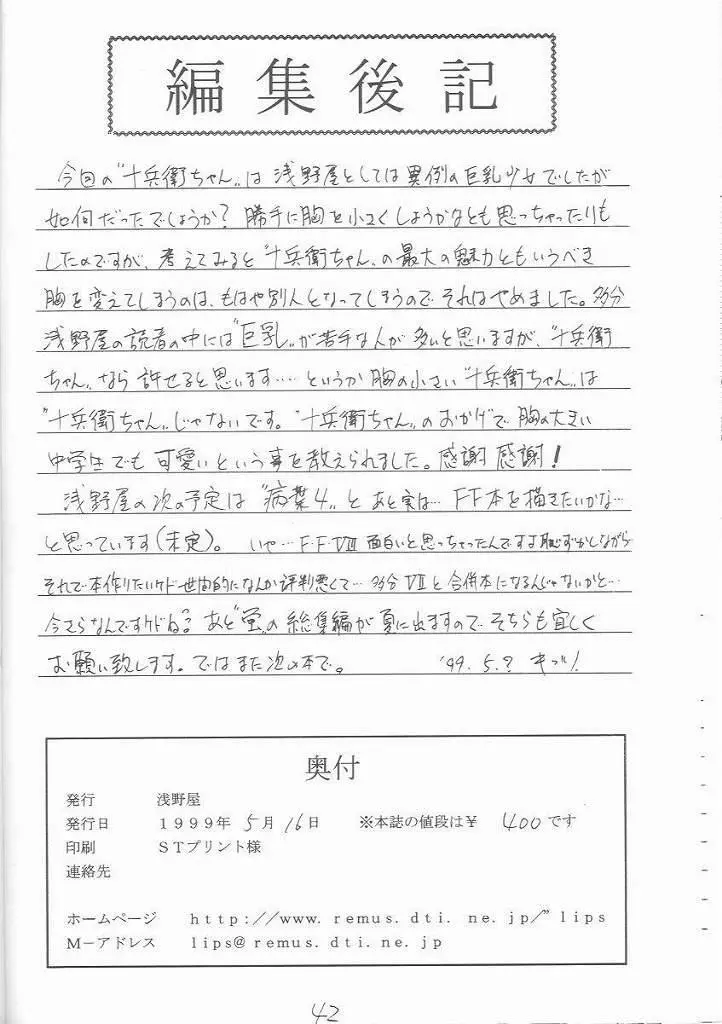 編集後記
今回の"十兵衛ちゃん"は浅野屋としては異例の巨乳少女でしたが
如何だったでしょうか？勝手に胸を小さくしようかなとも思っちゃったりも
したのですが、考えてみると"十兵衛ちゃん"の最大の魅力ともいうべき
胸を変えてしまうのは、もはや別人となってしまうのでそれはやめました。多分
浅野屋の読者の中には"巨乳"が苦手な人が多いと思いますが、"十兵衛
ちゃん"なら許せると思います‥‥というか胸の小さい"十兵衛ちゃん"は
"十兵衛ちゃん"じゃないです。"十兵衛ちゃん"のおかげで胸の大きい
中学生でも可愛いという事を教えられました。感謝感謝！
浅野屋の次の予定は"病葉4"とあと実は…FF本を描きたいかな…
と思っています(未定)。いや…F・FⅧ面白いと思っちゃったんですよ恥ずかしながら
それで本作りたいケド世間的になんか評判悪くて…多分Ⅶと合併本になるんじゃないかと…
今さらなんですケドね？あと"蛍"の総集編が夏に出ますのでそちらも宜しく
お願い致します。ではまた次の本で。 '99.5.?
奥付
発行 浅野屋
発行日 １９９９年 5月 16日 ※本誌の値段は￥ 400です
印刷 ＳＴプリント様
連絡先
ホームページ http://www.remus.dti.ne.jp/~lips
Ｍ－アドレス lips@remus.dti.ne.jp
42